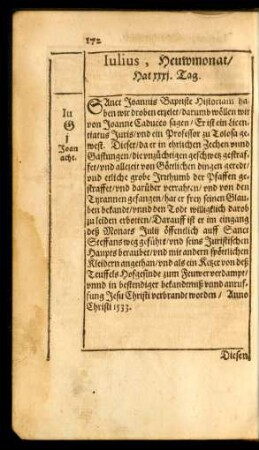 172
Iulius, Heuwmonat/
Hat xxxj. Tag.
Iu
G
i
Joan
acht.
SAnct Joannis Baptiste Historiam ha-
ben wir droben erzelet/ darumb wöllen wir
von Joanne Caducco sagen/ Er ist ein Licen-
tiatus Juris/ vnd ein Professor zu Tolosa ge-
west. Dieser/ da er in ehrlichen Zechen vnnd
Gastungen/ die vnzüchtigen geschwetz gestraf-
fet/ vnd allezeit von Göttlichen dingen geredt/
vnd etliche grobe Irrthumb der Pfaffen ge-
straffet/ vnd darüber verrahten/ vnd von den
Tyrannen gefangen/ hat er frey seinen Glau-
ben bekandt/ vnnd den Todt willigklich darob
zu leiden erbotten/ Darauff ist er im eingang
deß Monats Julii öffentlich auff Sanct
Steffans weg geführt/ vnd seins Juristischen
Haupts beraubet/ vnd mit andern spöttlichen
Kleidern angethan/ vnd als ein Ketzer von deß
Teuffels Hofgesinde zum Feuwer verdampt/
vnnd in bestendiger bekandtnuß vnnd anruf-
fung Jesu Christi verbrandt worden/ Anno
Christi 1533.
Diesen